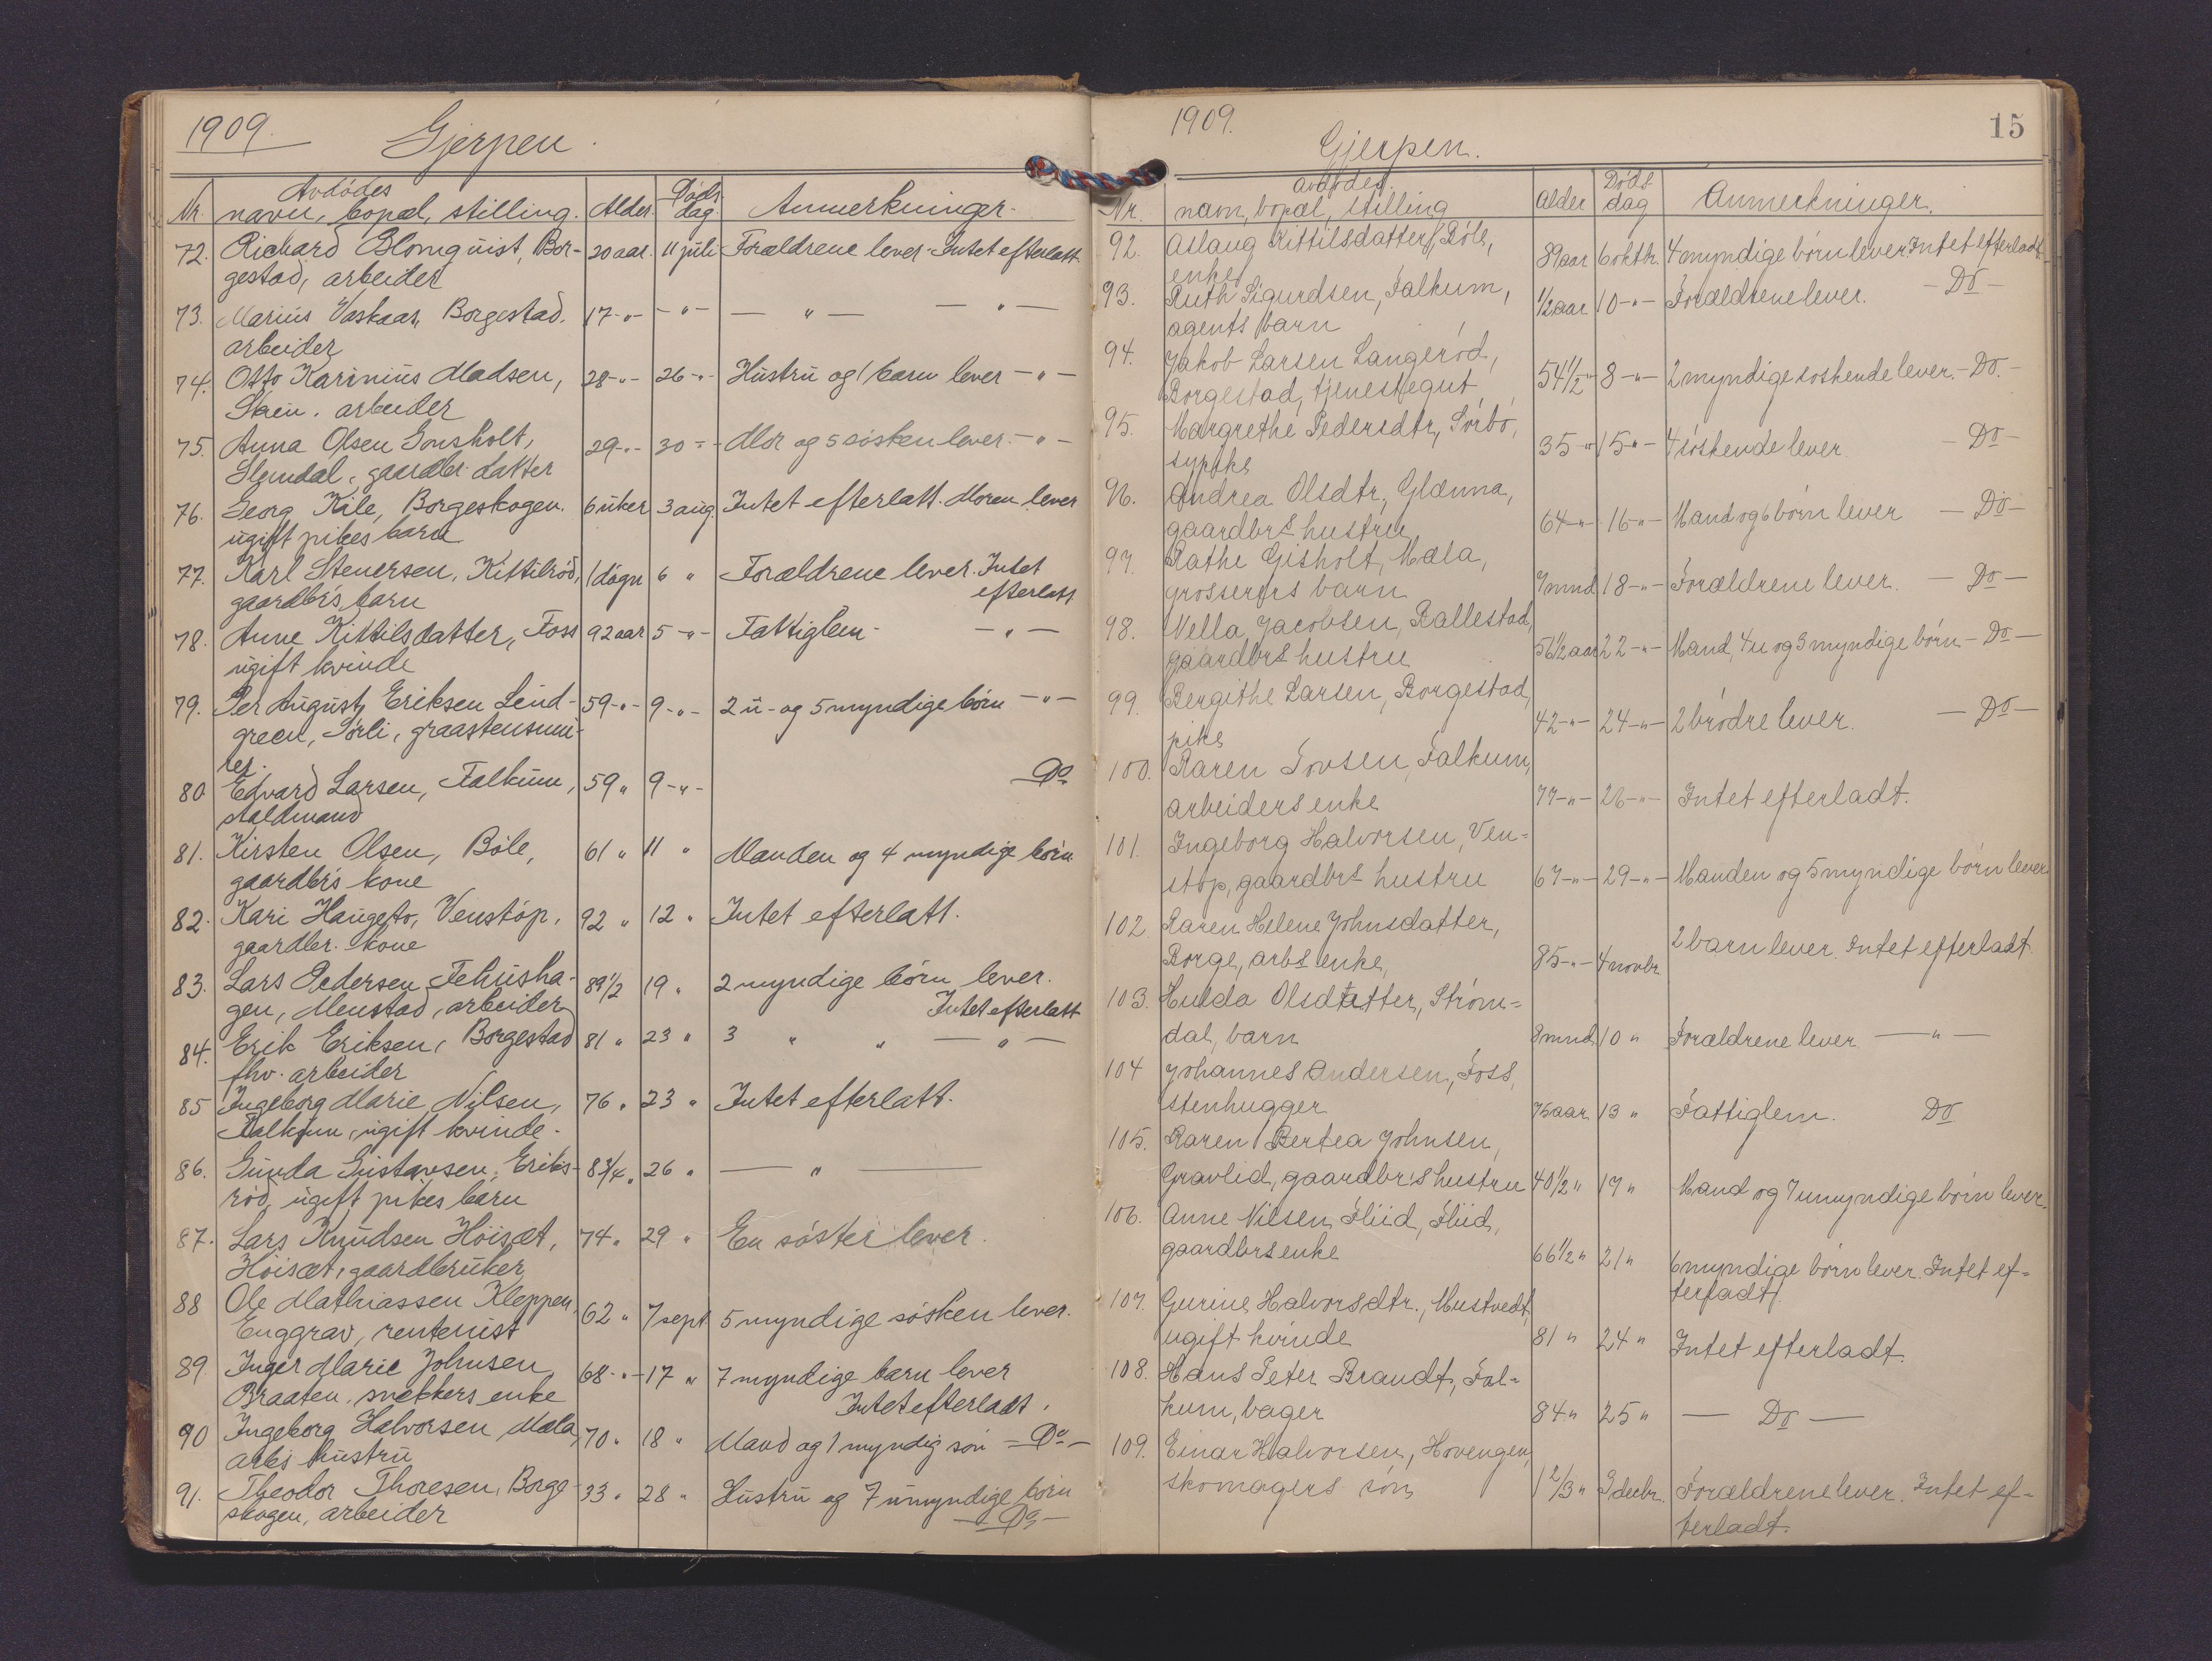 1909.
Gjerpen.
Nr. Avdødes navn, bopæl, stilling. Alder. Døds dag Anmerkninger.
72. Richard Blomquist, Bor- 20 aar. 11 juli Forældrene lever - Intet efterlatt.
gestad, arbeider
73. Marius Vaskaas, Borgestad. 17 -"- -"- - " - - " -
arbeider
74. Otto Karinius Madsen, 28 -"- 26 -"- Hustru og 1 barn lever -"-
Skien. arbeider
75. Anna Olsen Gonsholt, 29 -"- 30 -"- Mor og 5 søsken lever. -"-
Slemdal, gaardbr. datter
76. Georg Kile, Borgeskogen. 6 uker 3 aug. Intet efterlatt. Moren lever
ugift pikes barn
77. Karl Stenersen, Kittilrød, 1 døgn 6 " Forældrene lever. Intet
gaardbr's barn efterlatt
78. Anne Kittilsdatter, Foss 92 aar 5 -"- Fattiglem - -"-
ugift kvinde
79. Per August Eriksen Lind- 59 -"- 9 -"- 2 u- og 5 myndige børn -"-
green, Sørli, graastensmu-
rer.
80 Edvard Larsen, Falkum, 59 " 9 -"- Do
staldmand
81. Kirsten Olsen, Bøle, 61 " 11 " Manden og 4 myndige børn
gaardbr's kone
82. Kari Haugesto, Venstøp, 92 " 12 " Intet efterlatt.
gaardbr. kone
83. Lars Pedersen Fehusha- 89 1/2 19 " 2 myndige børn lever.
gen, Menstad, arbeider Intet efterlatt
84. Erik Eriksen, Borgestad 81 " 23 " 3 " " - " -
fhv. arbeider
85 Ingeborg Marie Nilsen, 76 " 23 " Intet efterlatt.
Falkum, ugift kvinde.
86. Gunda Gustavsen, Eriks- 8 3/4 " 26 " - " -
rød, ugift pikes barn
87. Lars Knudsen Høisæt, 74 " 29 " En søster lever.
Høisæt, gaardbruker
88 Ole Mathiassen Kleppen, 62 " 7 sept 5 myndige søsken lever.
Enggrav, rentenist
89. Inger Marie Johnsen 68 -"- 17 " 7 myndige barn lever
Braaten, snekkers enke Intet efterladt.
90 Ingeborg Halvorsen Mæla 70 " 18 " Mand og 1 myndig søn - Do -
arbs hustru
91. Theodor Thoresen, Borge- 33 " 28 " Hustru og 7 umyndige børn
skogen, arbeider - Do -
1909.
15
Gjerpen.
Nr. avdødes navn, bopæl, stilling Alder Døds dag Anmerkninger.
92. Aslaug Kittilsdatter, Bøle, 89 aar 6 oktbr. 4 myndige børn lever. Intet efterladt
enke
93. Ruth Sigurdsen, Falkum, 1/2 aar 10 -"- Forældrene lever. - Do -
agents barn
94. Jakob Larsen Langerød, 54 1/2 -"- 8 -"- 2 myndige søskende lever. - Do. -
Borgestad, tjenestegut
95. Margrethe Pedersdtr, Sørbø, 35 -"- 15 -"- 4 søskende lever - Do -
sypike
96. Andrea Olsdtr, Glænna, 64 -"- 16 -"- Mand og 6 børn lever - Do -
gaardbrs hustru
97. Kathe Gisholt, Mæla, 7 mnd 18 -"- Forældrene lever. - Do -
grosserers barn
98. Nella Jacobsen, Ballestad, 56 1/2 aar 22 -"- Mand, 4 u og 3 myndige børn - Do -
gaardbrs hustru
99. Bergithe Larsen, Borgestad, 42 -"- 24 -"- 2 brødre lever. - Do -
pike
100. Karen Tovsen, Falkum, 77 -"- 26 -"- Intet efterladt.
arbeiders enke
101. Ingeborg Halvorsen, Ven-
støp, gaardbrs hustru 67 -"- 29 -"- Manden og 5 myndige børn lever
102. Karen Helene Johnsdatter,
Borge, arbs enke 85 -"- 4 novbr. 2 barn lever. Intet efterladt
103. Hulda Olsdatter, Strøm-
dal, barn 8 mnd. 10 " Forældrene lever - " -
104 Johannes Andersen, Foss,
stenhugger 75 aar 13 " Fattiglem. Do
105. Karen Bertea Johnsen,
Gravlid, gaardbr's hustru 40 1/2 " 19 " Mand og 7 umyndige børn lever.
106. Anne Nilsen Fliid, Fliid,
gaardbrs enke 66 1/2 " 21 " 6 myndige børn lever. Intet ef-
terladt.
107. Gurine Halvorsdtr., Mustvedt,
ugift kvinde 81 " 24 " Intet efterladt.
108. Hans Peter Brandt, Fal-
kum, bager 84 " 25 " - Do -
109. Einar Halvorsen, Hovengen,
skomagers søn 1 2/3 " 3 decbr. Forældrene lever. Intet ef-
terladt.